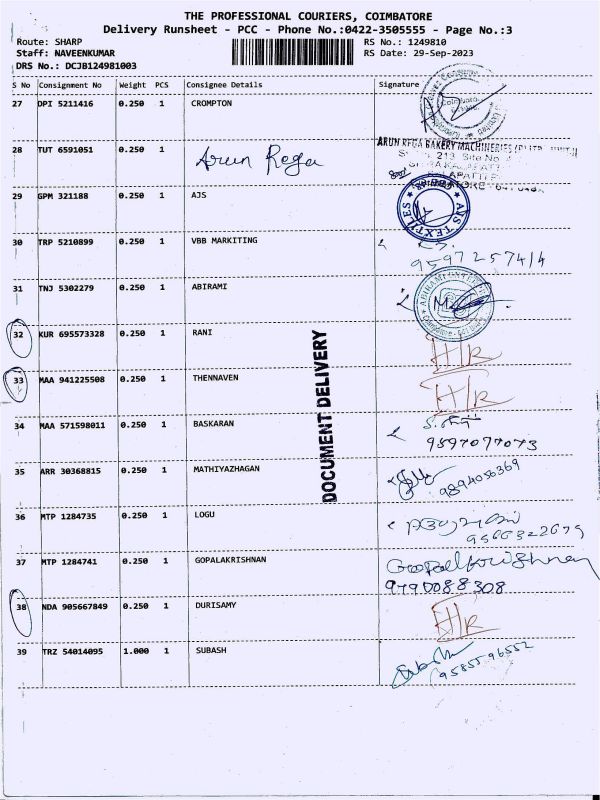 THE PROFESSIONAL COURIERS, COIMBATORE
Delivery Runsheet - PCC - Phone No.:0422-3505555 - Page No.:3
Route: SHARP RS No.: 1249810
Staff: NAVEENKUMAR RS Date: 29-Sep-2023
DRS No.: DCJB124981003
S No Consignment No Weight PCS Consignee Details Signature
27 DPI 5211416 0.250 1 CROMPTON
28 TUT 6591051 0.250 1 Arun Rega
ARUN REGA BAKERY MACHINERIES
213 Site No
29 GPM 321188 0.250 1 AJS
AJS TEXTILES
30 TRP 5210899 0.250 1 VBB MARKITING
9597257414
31 TNJ 5302279 0.250 1 ABIRAMI
32 KUR 695573328 0.250 1 RANI
H/R
33 MAA 941225508 0.250 1 THENNAVEN
H/R
DOCUMENT DELIVERY
34 MAA 571598011 0.250 1 BASKARAN
9597077073
35 ARR 30368815 0.250 1 MATHIYAZHAGAN
9894056369
36 MTP 1284735 0.250 1 LOGU
37 MTP 1284741 0.250 1 GOPALAKRISHNAN
Gopalkrishnan
9790088308
38 NDA 905667849 0.250 1 DURISAMY
H/R
39 TRZ 54014095 1.000 1 SUBASH
9585596552